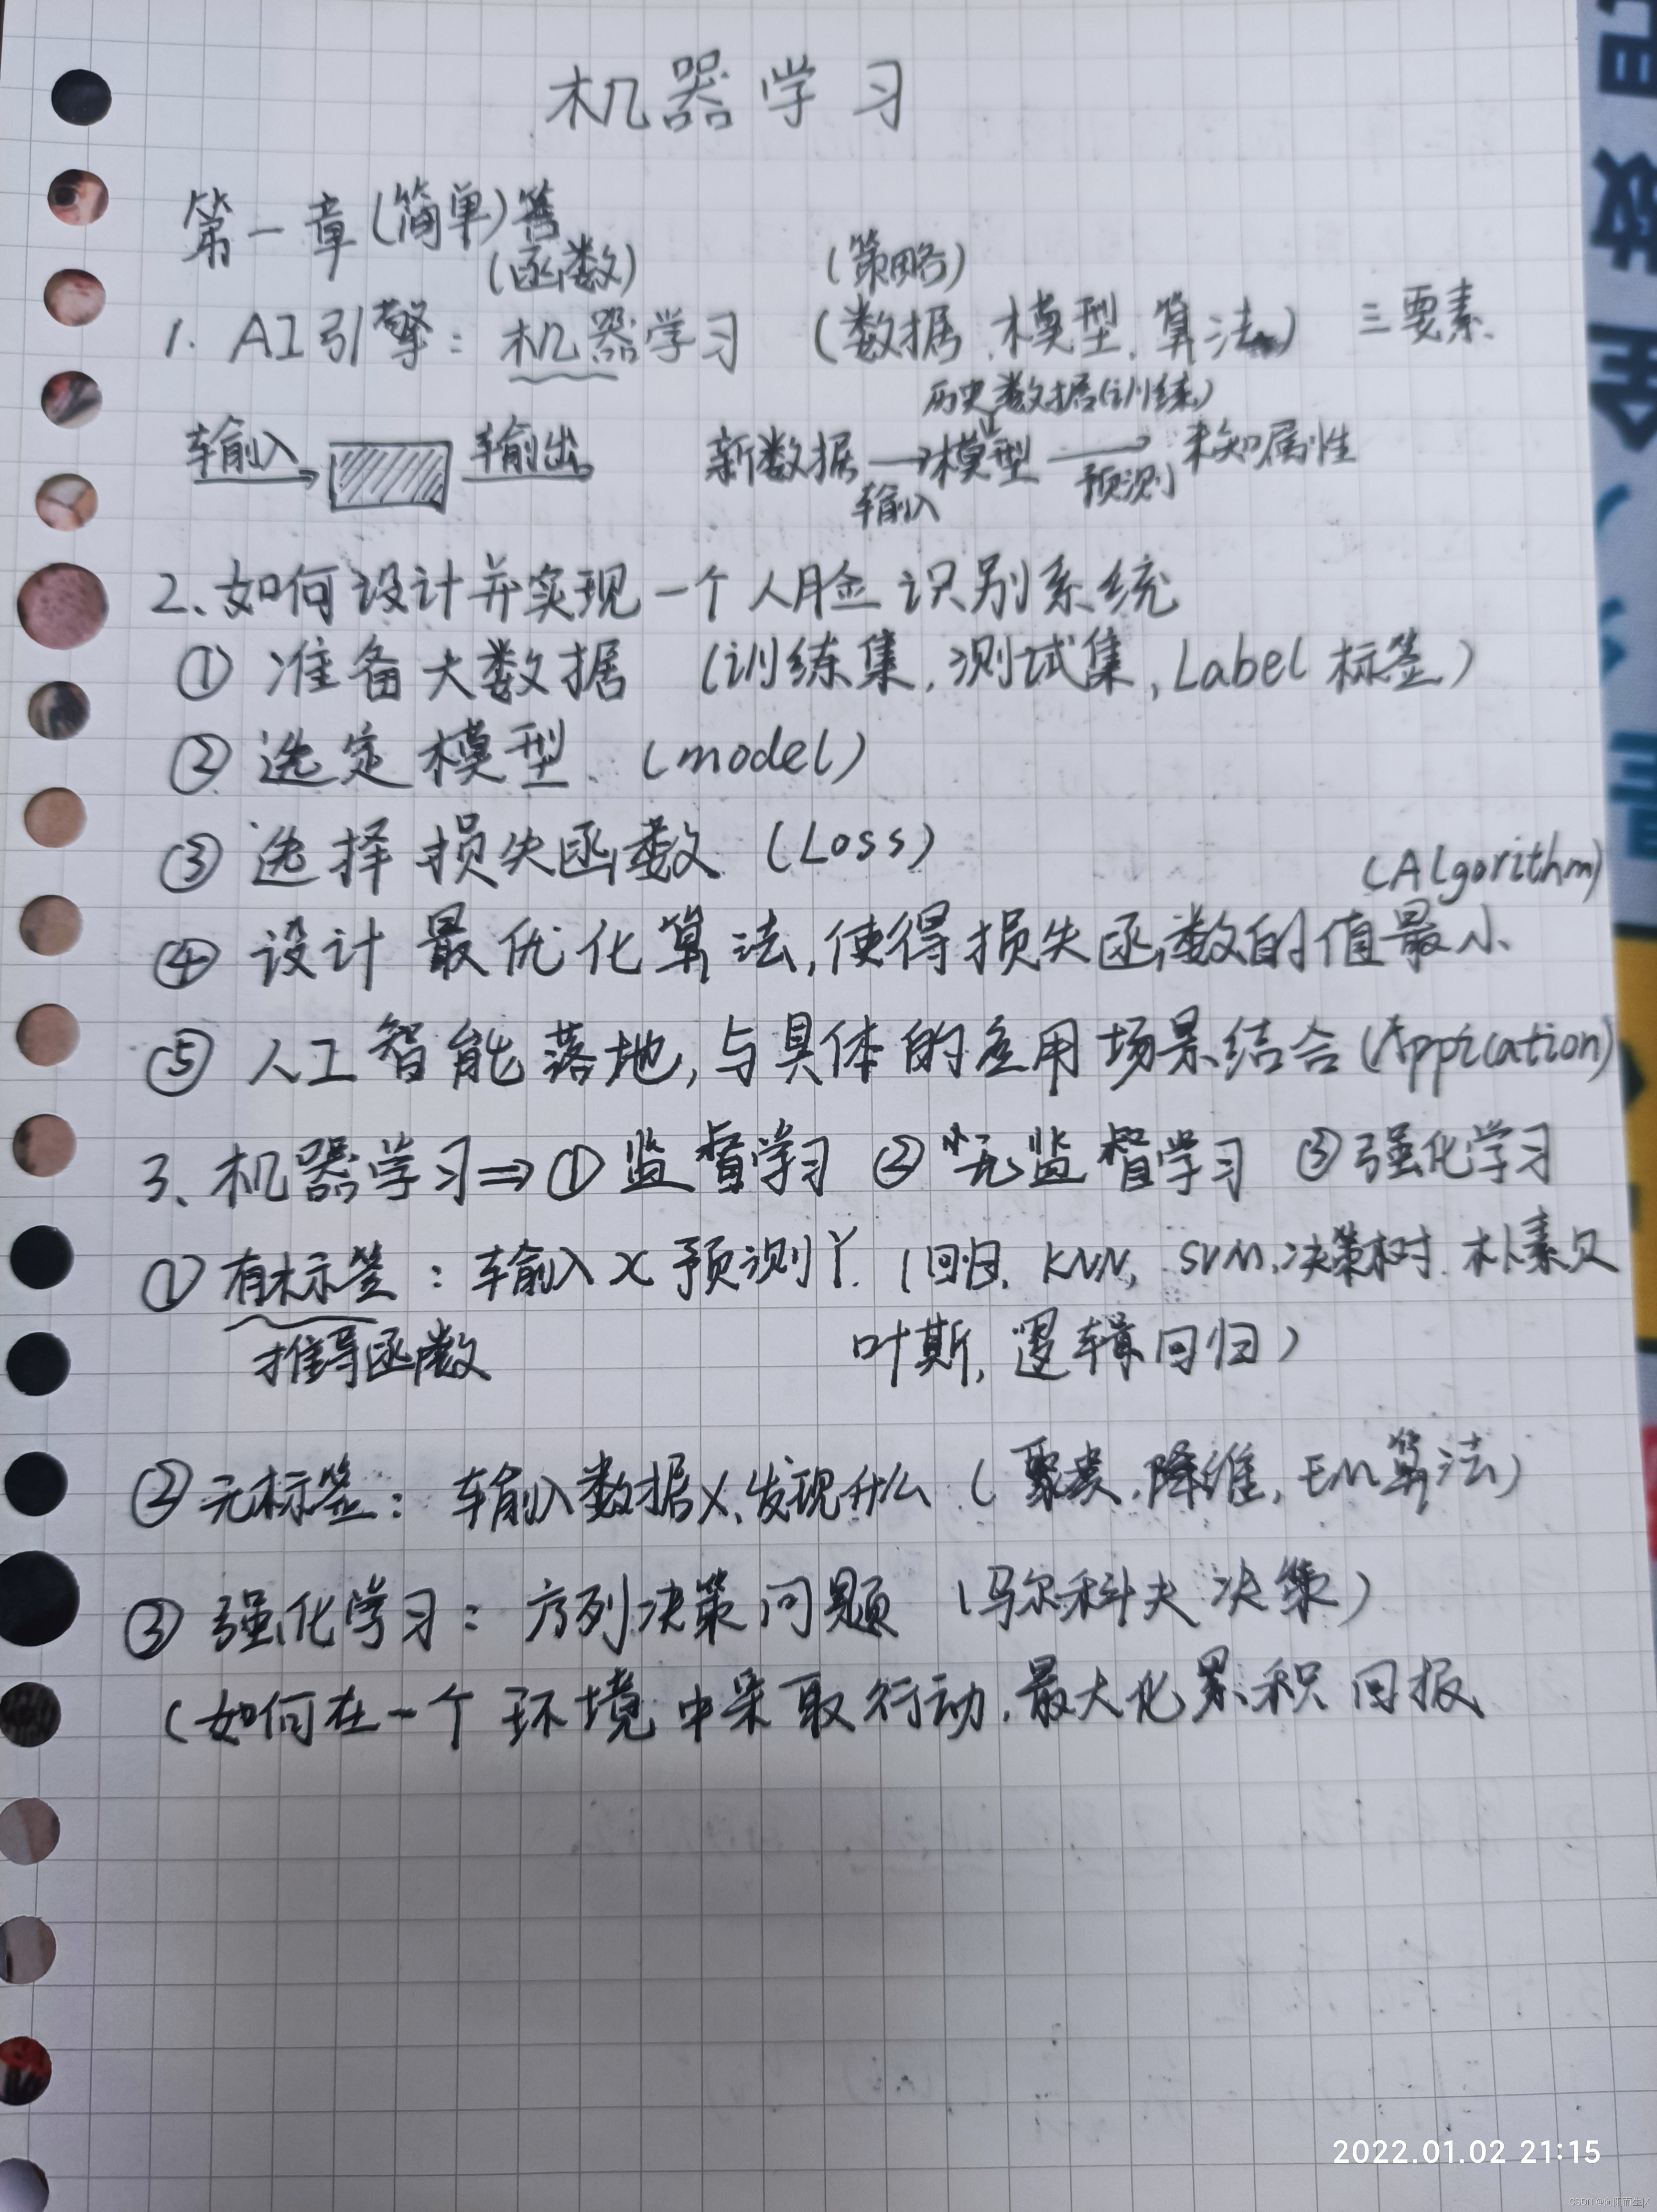 机器学习
第一章(简单)
(函数) (策略)
1. AI引擎：机器学习 (数据、模型、算法) 三要素
历史数据(训练)
输入 输出 新数据 → 模型 → 未知属性
输入 预测
2、如何设计并实现一个人脸识别系统
① 准备大数据 (训练集,测试集,Label 标签)
② 选定模型、(model)
③ 选择损失函数 (Loss)
(ALgorithm)
④ 设计最优化算法,使得损失函数的值最小
⑤ 人工智能落地,与具体的应用场景结合(Apprcation)
3、机器学习⇒① 监督学习 ② 无监督学习 ③ 强化学习
① 有标签：输入x预测Y. (回归, KNN, SVM,决策树、朴素贝
推导函数 叶斯,逻辑回归)
② 无标签：输入数据X,发现什么 (聚类,降维,EM算法)
③ 强化学习：序列决策问题 (马尔科夫决策)
(如何在一个环境中采取行动,最大化累积回报
2022.01.02 21:15